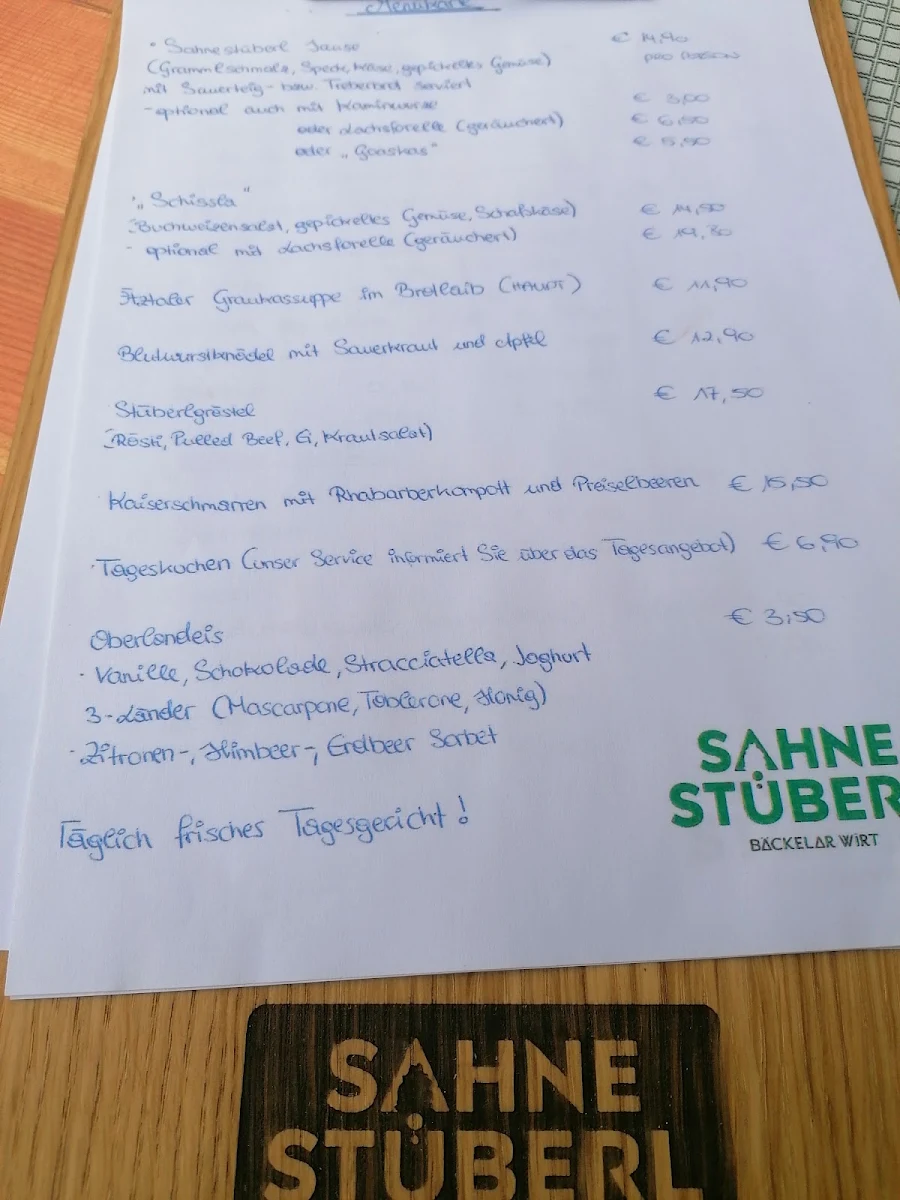 Menükarte
· Sahnestüberl Jause € 14,90
(Grammelschmalz, Speck, Käse, gepickeltes Gemüse) pro Person
mit Sauerteig- bzw. Treberbrot serviert
- optional auch mit Kaminwurze € 3,00
oder Lachsforelle (geräuchert) € 6,50
oder „Goaskas" € 5,50
· „Schissla"
(Buchweizensalat, gepickeltes Gemüse, Schafskäse) € 14,50
- optional mit Lachsforelle (geräuchert) € 19,80
Ötztaler Graukassuppe im Brotlaib € 11,90
Blutwurstknödel mit Sauerkraut und Apfel € 12,90
Stüberlgröstel € 17,50
(Rösti, Pulled Beef, G, Krautsalat)
· Kaiserschmarren mit Rhabarberkompott und Preiselbeeren € 15,50
· Tageskuchen (unser Service informiert Sie über das Tagesangebot) € 6,90
Oberlandeis € 3,50
· Vanille, Schokolade, Stracciatella, Joghurt
3-Länder (Mascarpone, Toblerone, Honig)
· Zitronen-, Himbeer-, Erdbeer Sorbet
Täglich frisches Tagesgericht!
SAHNE
STÜBER
BÄCKELAR WIRT
SAHNE
STÜBERL